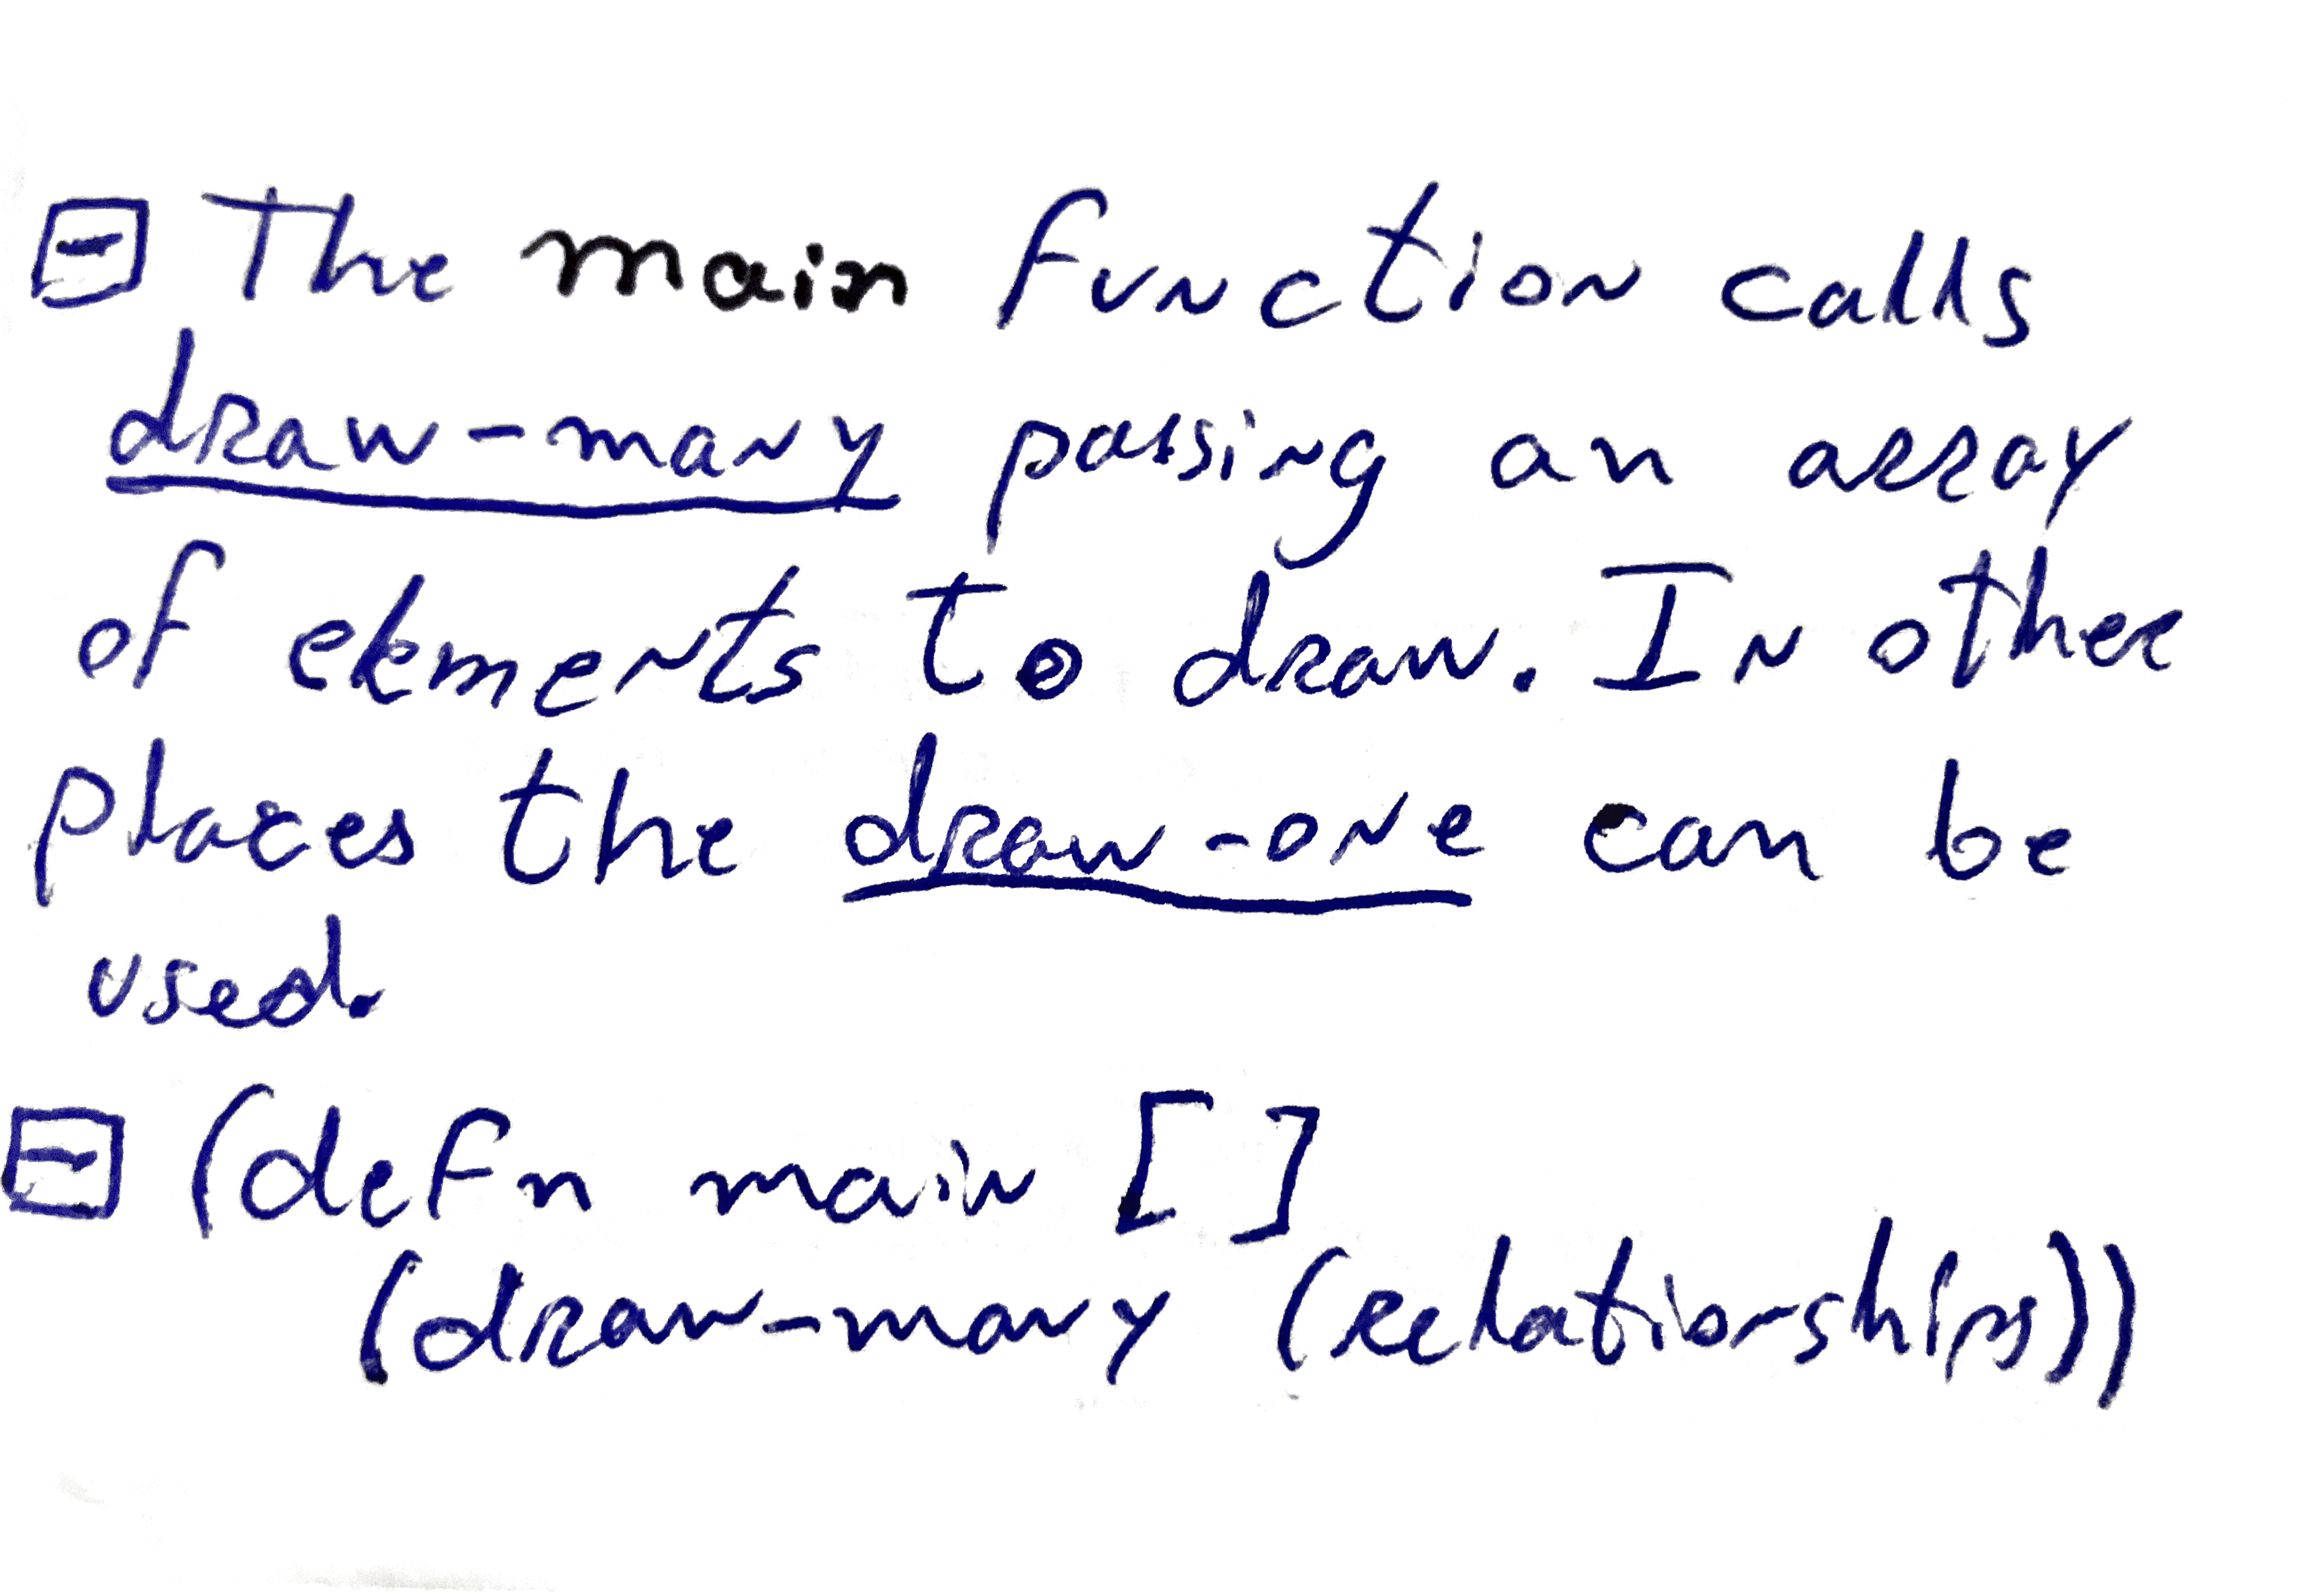 ⊟ The main function calls
draw-many passing an array
of elements to draw. In other
places the draw-one can be
used.
⊟ (defn main []
(draw-many (relationships))